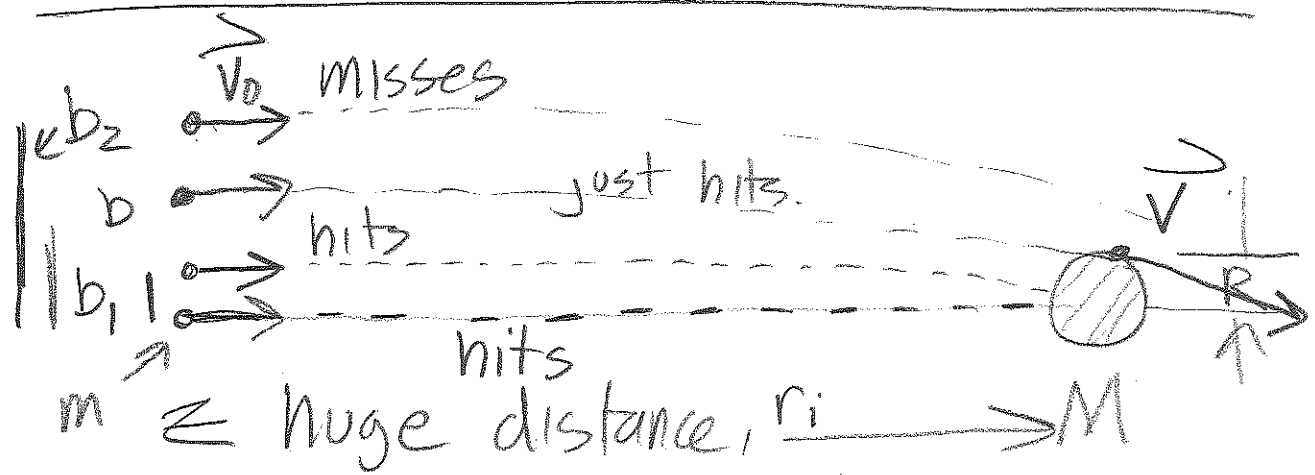 V₀ misses
b₂
b just hits.
V
hits
R
b₁
hits
m huge distance, rᵢ M